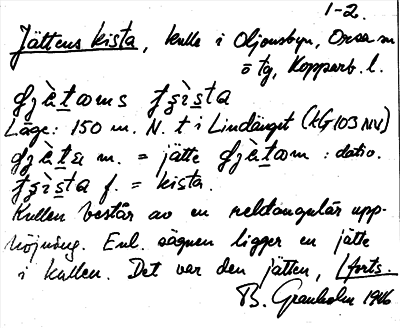 1-2.
Jättens kista, kulle i Oljonsbyn, Orsa sn
ö tg, Kopparb. l.
Läge: 150 m. N. t i Lindänget (kG 103 NV)
m. = jätte : dativ.
f. = kista.
Kullen består av en rektangulär upp-
höjning. Enl. sägnen ligger en jätte
i kullen. Det var den jätten, [forts.
B. Granholm 1946